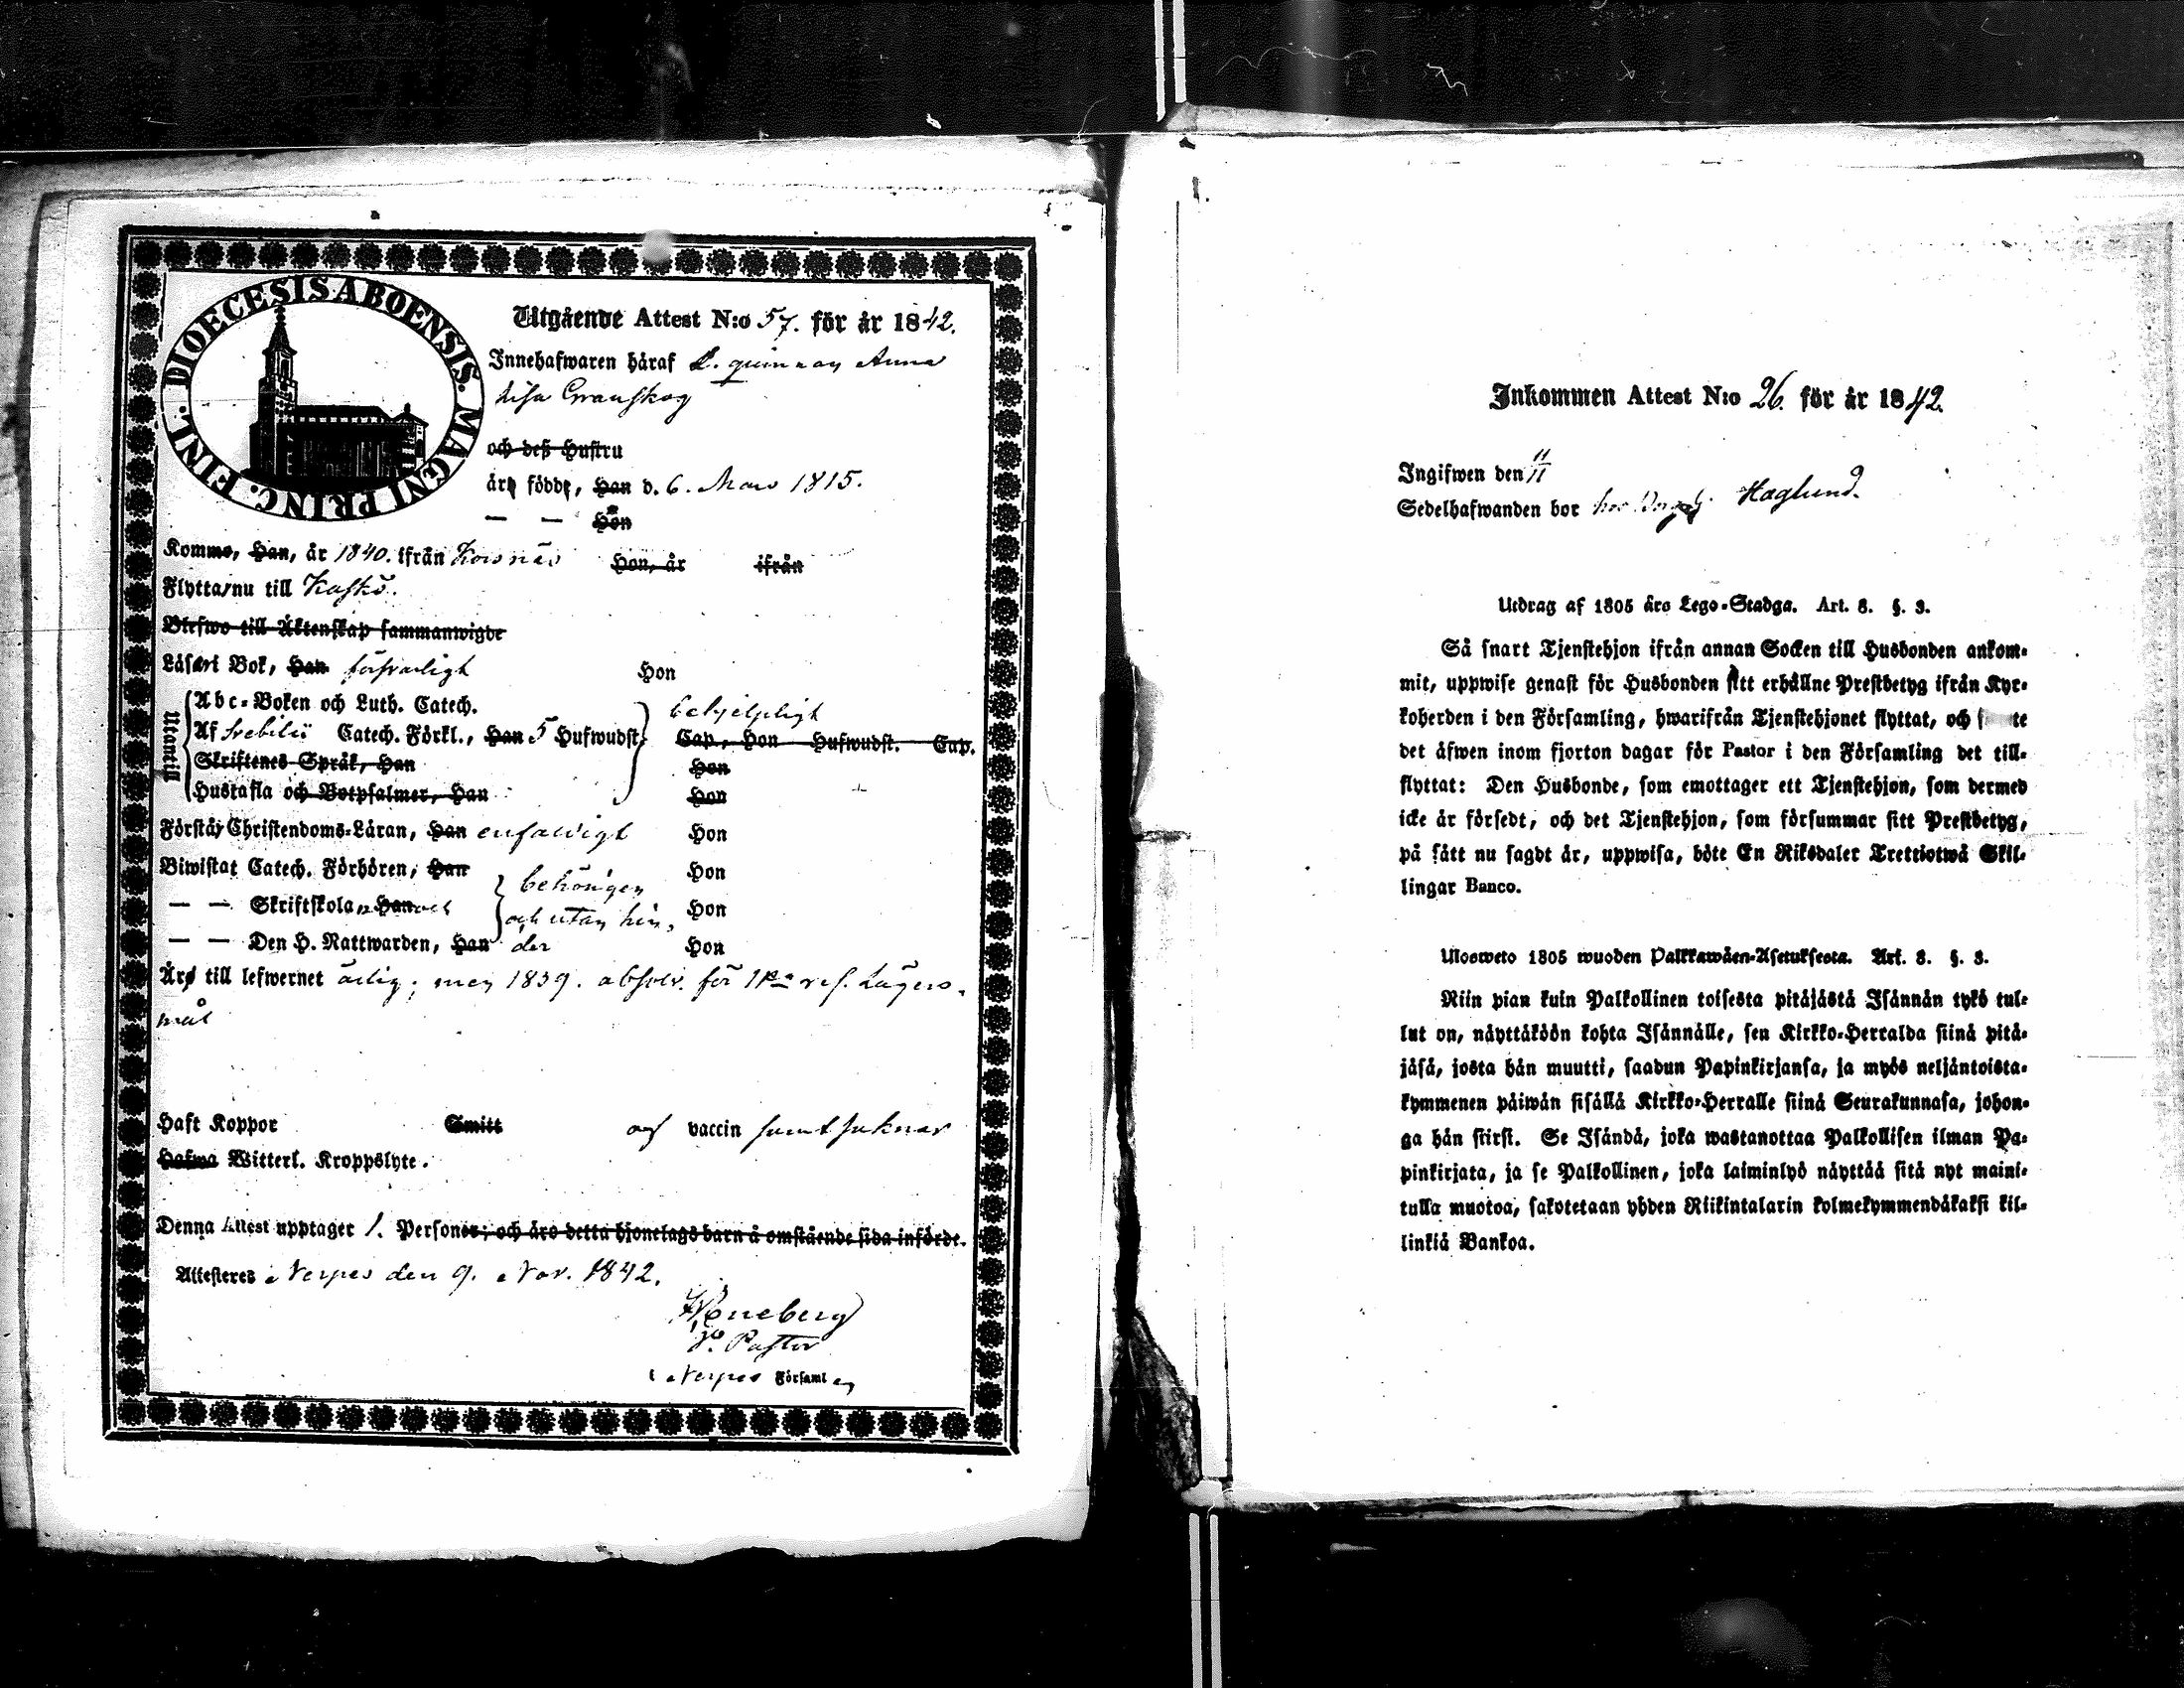 DIOECESIS ABOENSIS. MAGNI PRINC. FINL.
Utgående Attest N:o 57. för år 1842.
Innehafwaren häraf L. quinnan Anna
Lisa Granskog
och deß Hustru
äro födde, Han d. 6. Mars 1815.
— — Hon
Komme, Han, år 1840. ifrån Korsnäs Hon, år ifrån
Flytta nu till Kaskö.
Blefwo till Äktenskap sammanwigde
Läsa i Bok, Han försvarligt Hon
Utantill
Abc-Boken och Luth. Catech. behjelpligt
Af Svebilii Catech. Förkl., Han 5 Hufwudst. Cap., Hon Hufwudst. Cap.
Skriftenes Språk, Han Hon
Hustafla och Botpsalmer, Han Hon
Förstår Christendoms-Läran, Han enfaldigt Hon
Biwistat Catech. Förhören, Han behörigen Hon
— — Skriftskolan Han och och utan hin- Hon
— — Den H. Nattwarden, Han der Hon
Äro till lefwernet ärlig; men 1839. absolv. för 1sta res. Lägers-
mål
Haft Koppor Smitt af vaccin samt saknar
Hafwa Witterl. Kroppslyte.
Denna Attest upptager 1. Personer; och äro detta hjonelags barn å omstående sida införde.
Attesteras Nerpes den 9. Nov. 1842.
Pastor
i Nerpes Församl en
Inkommen Attest N:o 26. för år 1842.
Ingifwen den 11/11
Sedelhafwanden bor hos Haglund.
Utdrag af 1805 års Lego-Stadga. Art. 8. §. 3.
Så snart Tjenstehjon ifrån annan Socken till Husbonden ankom-
mit, uppwise genast för Husbonden sitt erhållne Prestbetyg ifrån Kyr-
koherden i den Församling, hwarifrån Tjenstehjonet flyttat, och
det äfwen inom fjorton dagar för Pastor i den Församling det till-
flyttat: Den Husbonde, som emottager ett Tjenstehjon, som dermed
icke är försedt, och det Tjenstehjon, som försummar sitt Prestbetyg,
på sätt nu sagdt är, uppwisa, böte En Riksdaler Trettiotwå Skil-
lingar Banco.
Ulosweto 1805 wuoden Palkkawäen-Asetuksesta. Art. 8. §. 3.
Niin pian kuin Palkollinen toisesta pitäjästä Isännän tykö tul-
lut on, näyttäköön kohta Isännälle, sen Kirkko-Herralda siinä pitä-
jäsä, josta hän muutti, saadun Papinkirjansa, ja myös neljäntoista-
kymmenen päiwän sisällä Kirkko-Herralle siinä Seurakunnasa, johon-
ga hän siirsi. Se Isändä, joka wastanottaa Palkollisen ilman Pa-
pinkirjata, ja se Palkollinen, joka laiminlyö näyttää sitä nyt maini-
tulla muotoa, sakotetaan yhden Riikintalarin kolmekymmendäkaksi kil-
linkiä Bankoa.